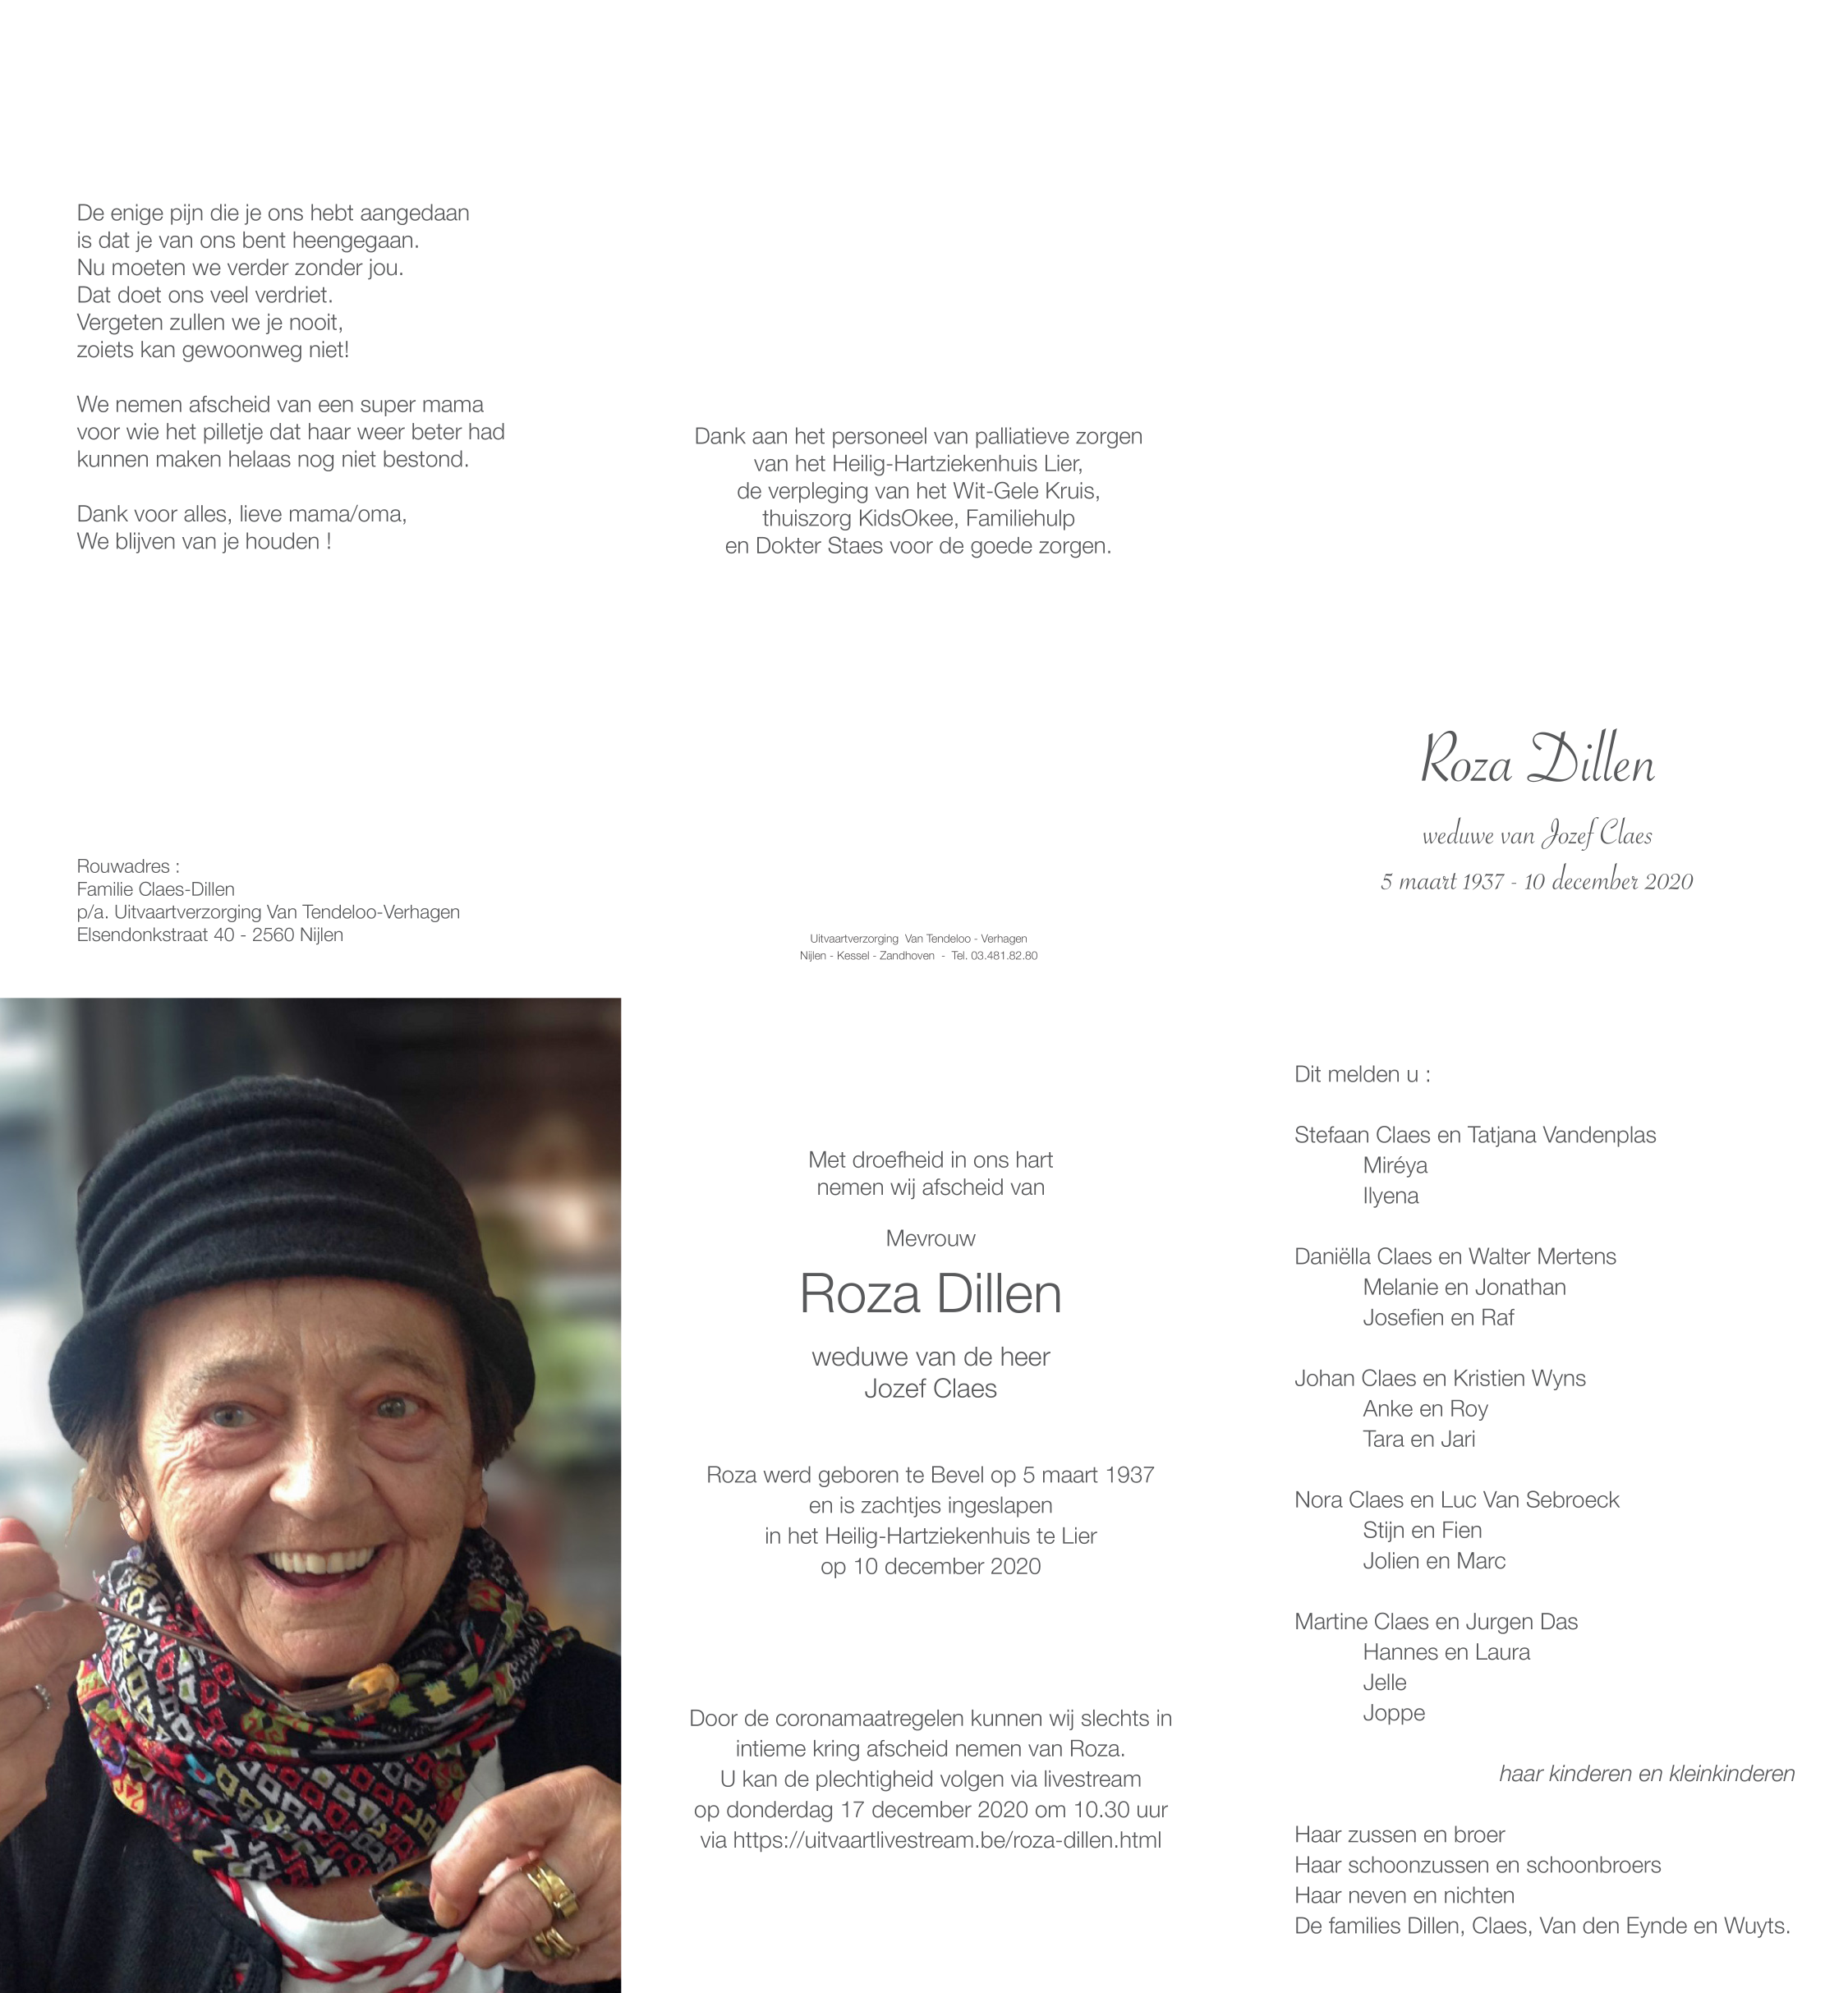 De enige pijn die je ons hebt aangedaan
is dat je van ons bent heengegaan.
Nu moeten we verder zonder jou.
Dat doet ons veel verdriet.
Vergeten zullen we je nooit,
zoiets kan gewoonweg niet!
We nemen afscheid van een super mama
voor wie het pilletje dat haar weer beter had
kunnen maken helaas nog niet bestond.
Dank voor alles, lieve mama/oma,
We blijven van je houden !
Rouwadres :
Familie Claes-Dillen
p/a. Uitvaartverzorging Van Tendeloo-Verhagen
Elsendonkstraat 40 - 2560 Nijlen
Dank aan het personeel van palliatieve zorgen
van het Heilig-Hartziekenhuis Lier,
de verpleging van het Wit-Gele Kruis,
thuiszorg KidsOkee, Familiehulp
en Dokter Staes voor de goede zorgen.
Uitvaartverzorging Van Tendeloo - Verhagen
Nijlen - Kessel - Zandhoven - Tel. 03.481.82.80
Roza Dillen
weduwe van Jozef Claes
5 maart 1937 - 10 december 2020
Met droefheid in ons hart
nemen wij afscheid van
Mevrouw
Roza Dillen
weduwe van de heer
Jozef Claes
Roza werd geboren te Bevel op 5 maart 1937
en is zachtjes ingeslapen
in het Heilig-Hartziekenhuis te Lier
op 10 december 2020
Door de coronamaatregelen kunnen wij slechts in
intieme kring afscheid nemen van Roza.
U kan de plechtigheid volgen via livestream
op donderdag 17 december 2020 om 10.30 uur
via https://uitvaartlivestream.be/roza-dillen.html
Dit melden u :
Stefaan Claes en Tatjana Vandenplas
Miréya
Ilyena
Daniëlla Claes en Walter Mertens
Melanie en Jonathan
Josefien en Raf
Johan Claes en Kristien Wyns
Anke en Roy
Tara en Jari
Nora Claes en Luc Van Sebroeck
Stijn en Fien
Jolien en Marc
Martine Claes en Jurgen Das
Hannes en Laura
Jelle
Joppe
haar kinderen en kleinkinderen
Haar zussen en broer
Haar schoonzussen en schoonbroers
Haar neven en nichten
De families Dillen, Claes, Van den Eynde en Wuyts.